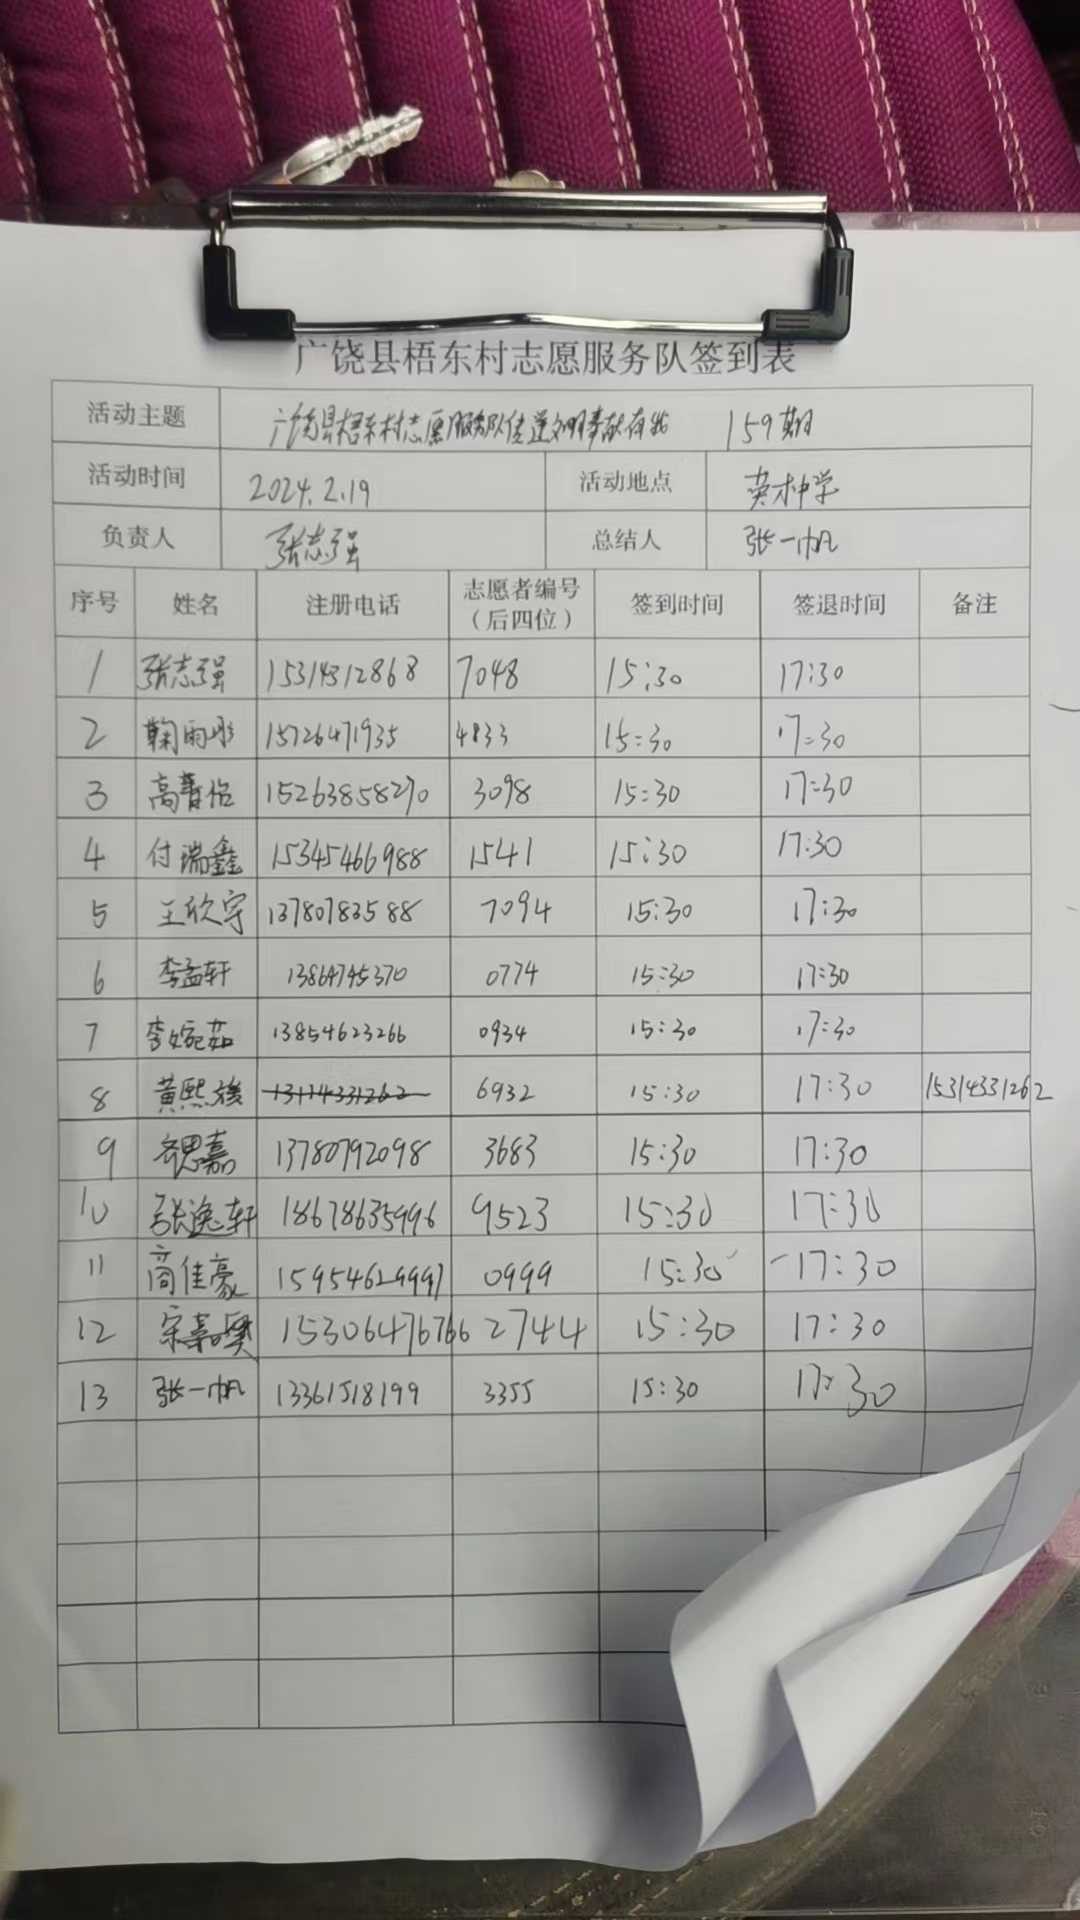 广饶县梧东村志愿服务队签到表
活动主题 广饶县梧东村志愿服务队传递文明奉献有我 159期
活动时间 2024.2.19 活动地点 英才中学
负责人 张志强 总结人 张一帆
序号 姓名 注册电话 志愿者编号（后四位） 签到时间 签退时间 备注
1 张志强 15314312868 7048 15:30 17:30
2 鞠雨彤 15726471935 4833 15:30 17:30
3 高菁侣 15263858270 3098 15:30 17:30
4 付瑞鑫 15345466988 1541 15:30 17:30
5 王欣宇 13780783588 7094 15:30 17:30
6 李孟轩 13864745370 0774 15:30 17:30
7 李婉茹 13854623266 0934 15:30 17:30
8 黄熙 13114331262 6932 15:30 17:30 15314331262
9 思嘉 13780792098 3683 15:30 17:30
10 张逸轩 18678635996 9523 15:30 17:30
11 商佳豪 15954629997 0999 15:30 17:30
12 宋 15306476766 2744 15:30 17:30
13 张一帆 13361518199 3355 15:30 17:30